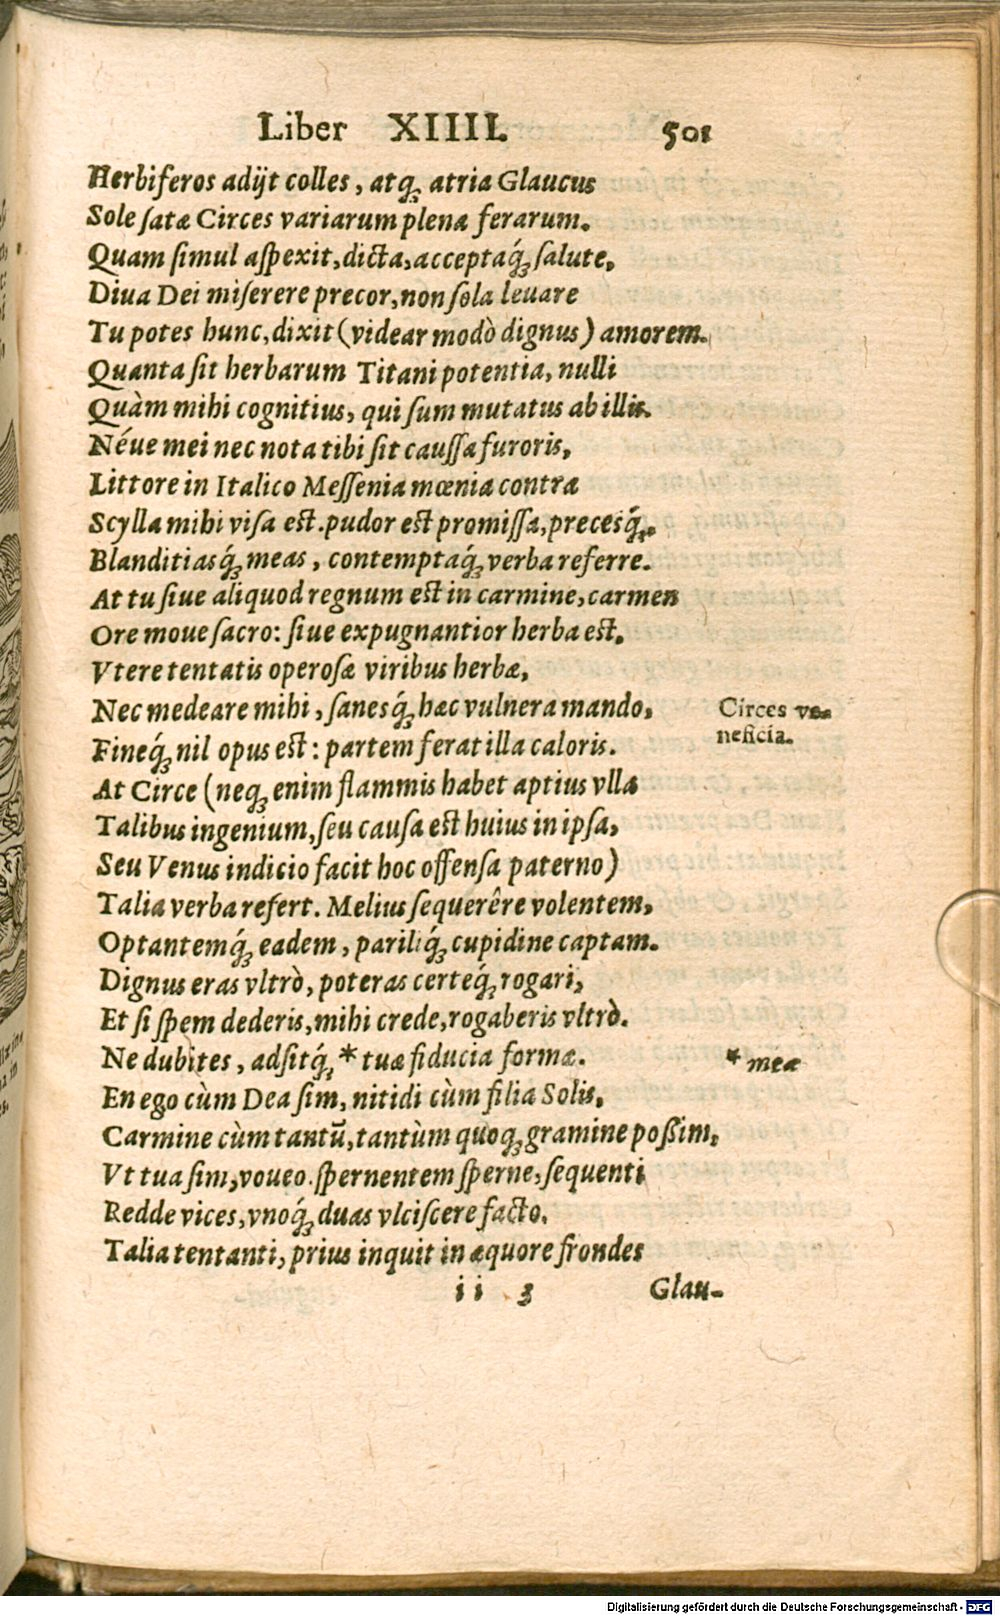 Liber XIIII. 501
Herbiferos adijt colles, atq; atria Glaucus
Sole ſatæ Circes variarum plena ferarum.
Quam ſimul aſpexit, dicta, acceptaq́; ſalute,
Diua Dei miſerere precor, non ſola leuare
Tu potes hunc, dixit (videar modò dignus) amorem.
Quanta ſit herbarum Titani potentia, nulli
Quàm mihi cognitius, qui ſum mutatus ab illis.
Néue mei nec nota tibi ſit cauſſa furoris,
Littore in Italico Meſſenia mœnia contra
Scylla mihi viſa eſt. pudor eſt promiſſa, precesq́;,
Blanditiasq́; meas, contemptaq́; verba referre.
At tu ſiue aliquod regnum eſt in carmine, carmen
Ore moue ſacro: ſiue expugnantior herba eſt,
Vtere tentatis operoſæ viribus herbæ,
Nec medeare mihi, ſanesq́; hæc vulnera mando,
Circes ve-
neficia.
Fineq́; nil opus eſt: partem ferat illa caloris.
At Circe (neq; enim flammis habet aptius vlla
Talibus ingenium, ſeu cauſa eſt huius in ipſa,
Seu Venus indicio facit hoc offenſa paterno)
Talia verba refert. Melius ſequerêre volentem,
Optantemq́; eadem, pariliq́; cupidine captam.
Dignus eras vltrò, poteras certeq́; rogari,
Et ſi ſpem dederis, mihi crede, rogaberis vltrò.
Ne dubites, adſitq́; * tuæ fiducia formæ.
* meæ
En ego cùm Dea ſim, nitidi cùm filia Solis,
Carmine cùm tantū, tantùm quoq; gramine poßim,
Vt tua ſim, voueo. ſpernentem ſperne, ſequenti
Redde vices, vnoq́; duas vlciſcere facto.
Talia tentanti, prius inquit in æquore frondes
ii 3 Glau-
Digitalisierung gefördert durch die Deutsche Forschungsgemeinschaft - DFG